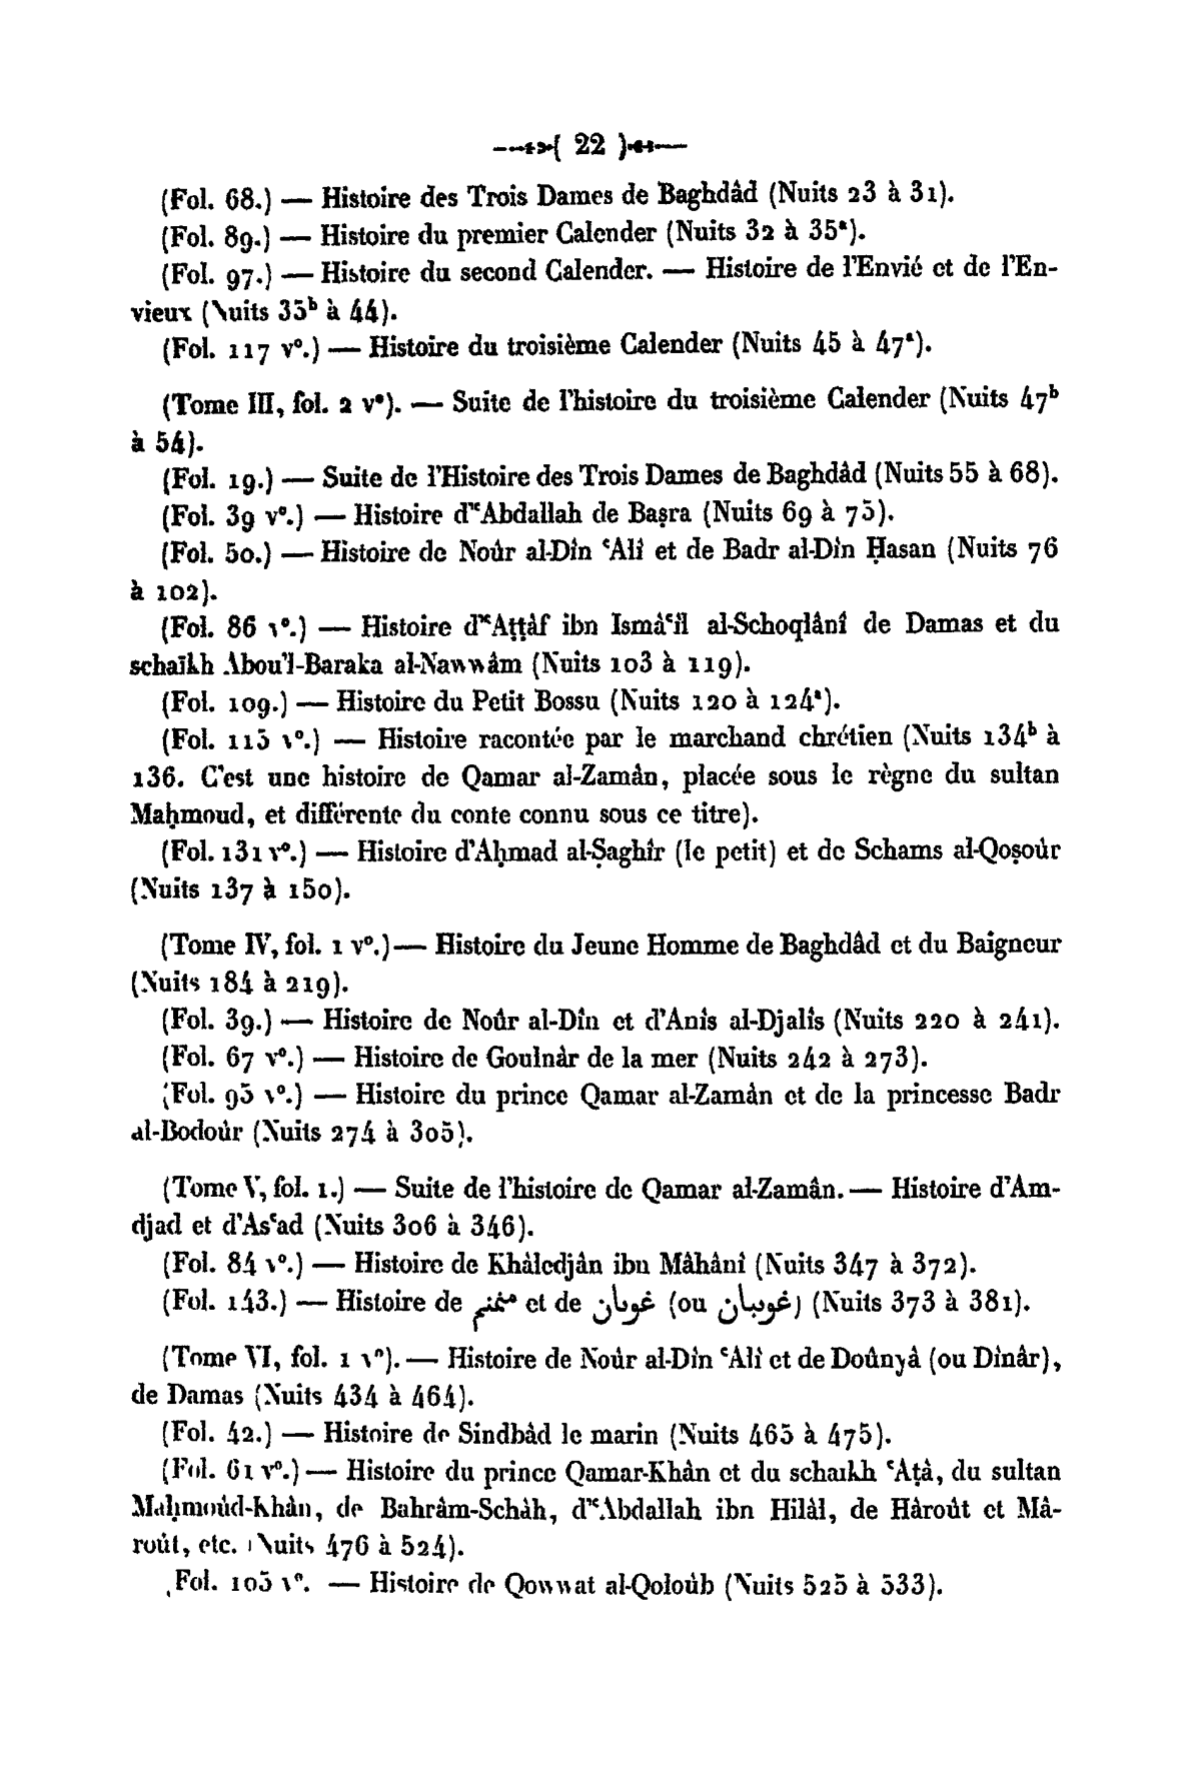 22
(Fol. 68.) — Histoire des Trois Dames de Baghdâd (Nuits 23 à 31).
(Fol. 89.) — Histoire du premier Calender (Nuits 32 à 35ᵃ).
(Fol. 97.) — Histoire du second Calender. — Histoire de l'Envié et de l'En-
vieux (Nuits 35ᵇ à 44).
(Fol. 117 v°.) — Histoire du troisième Calender (Nuits 45 à 47ᵃ).
(Tome III, fol. 2 v°). — Suite de l'histoire du troisième Calender (Nuits 47ᵇ
à 54).
(Fol. 19.) — Suite de l'Histoire des Trois Dames de Baghdâd (Nuits 55 à 68).
(Fol. 39 v°.) — Histoire d'ʿAbdallah de Baṣra (Nuits 69 à 75).
(Fol. 50.) — Histoire de Noûr al-Dîn ʿAlî et de Badr al-Dîn Ḥasan (Nuits 76
à 102).
(Fol. 86 v°.) — Histoire d'ʿAṭṭâf ibn Ismâʿîl al-Schoqlânî de Damas et du
schaïkh Abou'l-Baraka al-Nawwâm (Nuits 103 à 119).
(Fol. 109.) — Histoire du Petit Bossu (Nuits 120 à 124ᵃ).
(Fol. 115 v°.) — Histoire racontée par le marchand chrétien (Nuits 134ᵇ à
136. C'est une histoire de Qamar al-Zamân, placée sous le règne du sultan
Maḥmoud, et différente du conte connu sous ce titre).
(Fol. 131 v°.) — Histoire d'Aḥmad al-Ṣaghîr (le petit) et de Schams al-Qoṣoûr
(Nuits 137 à 150).
(Tome IV, fol. 1 v°.) — Histoire du Jeune Homme de Baghdâd et du Baigneur
(Nuits 184 à 219).
(Fol. 39.) — Histoire de Noûr al-Dîn et d'Anîs al-Djalîs (Nuits 220 à 241).
(Fol. 67 v°.) — Histoire de Goulnâr de la mer (Nuits 242 à 273).
(Fol. 95 v°.) — Histoire du prince Qamar al-Zamân et de la princesse Badr
al-Bodoûr (Nuits 274 à 305).
(Tome V, fol. 1.) — Suite de l'histoire de Qamar al-Zamân. — Histoire d'Am-
djad et d'Asʿad (Nuits 306 à 346).
(Fol. 84 v°.) — Histoire de Khâledjân ibn Mâhânî (Nuits 347 à 372).
(Fol. 143.) — Histoire de et de غوبان (ou غوبيان) (Nuits 373 à 381).
(Tome VI, fol. 1 v°). — Histoire de Noûr al-Dîn ʿAlî et de Doûnyâ (ou Dînâr),
de Damas (Nuits 434 à 464).
(Fol. 42.) — Histoire de Sindbâd le marin (Nuits 465 à 475).
(Fol. 61 v°.) — Histoire du prince Qamar-Khân et du schaïkh ʿAṭâ, du sultan
Maḥmoûd-Khân, de Bahrâm-Schâh, d'ʿAbdallah ibn Hilâl, de Hâroût et Mâ-
roût, etc. (Nuits 476 à 524).
(Fol. 105 v°. — Histoire de Qowwat al-Qoloûb (Nuits 525 à 533).